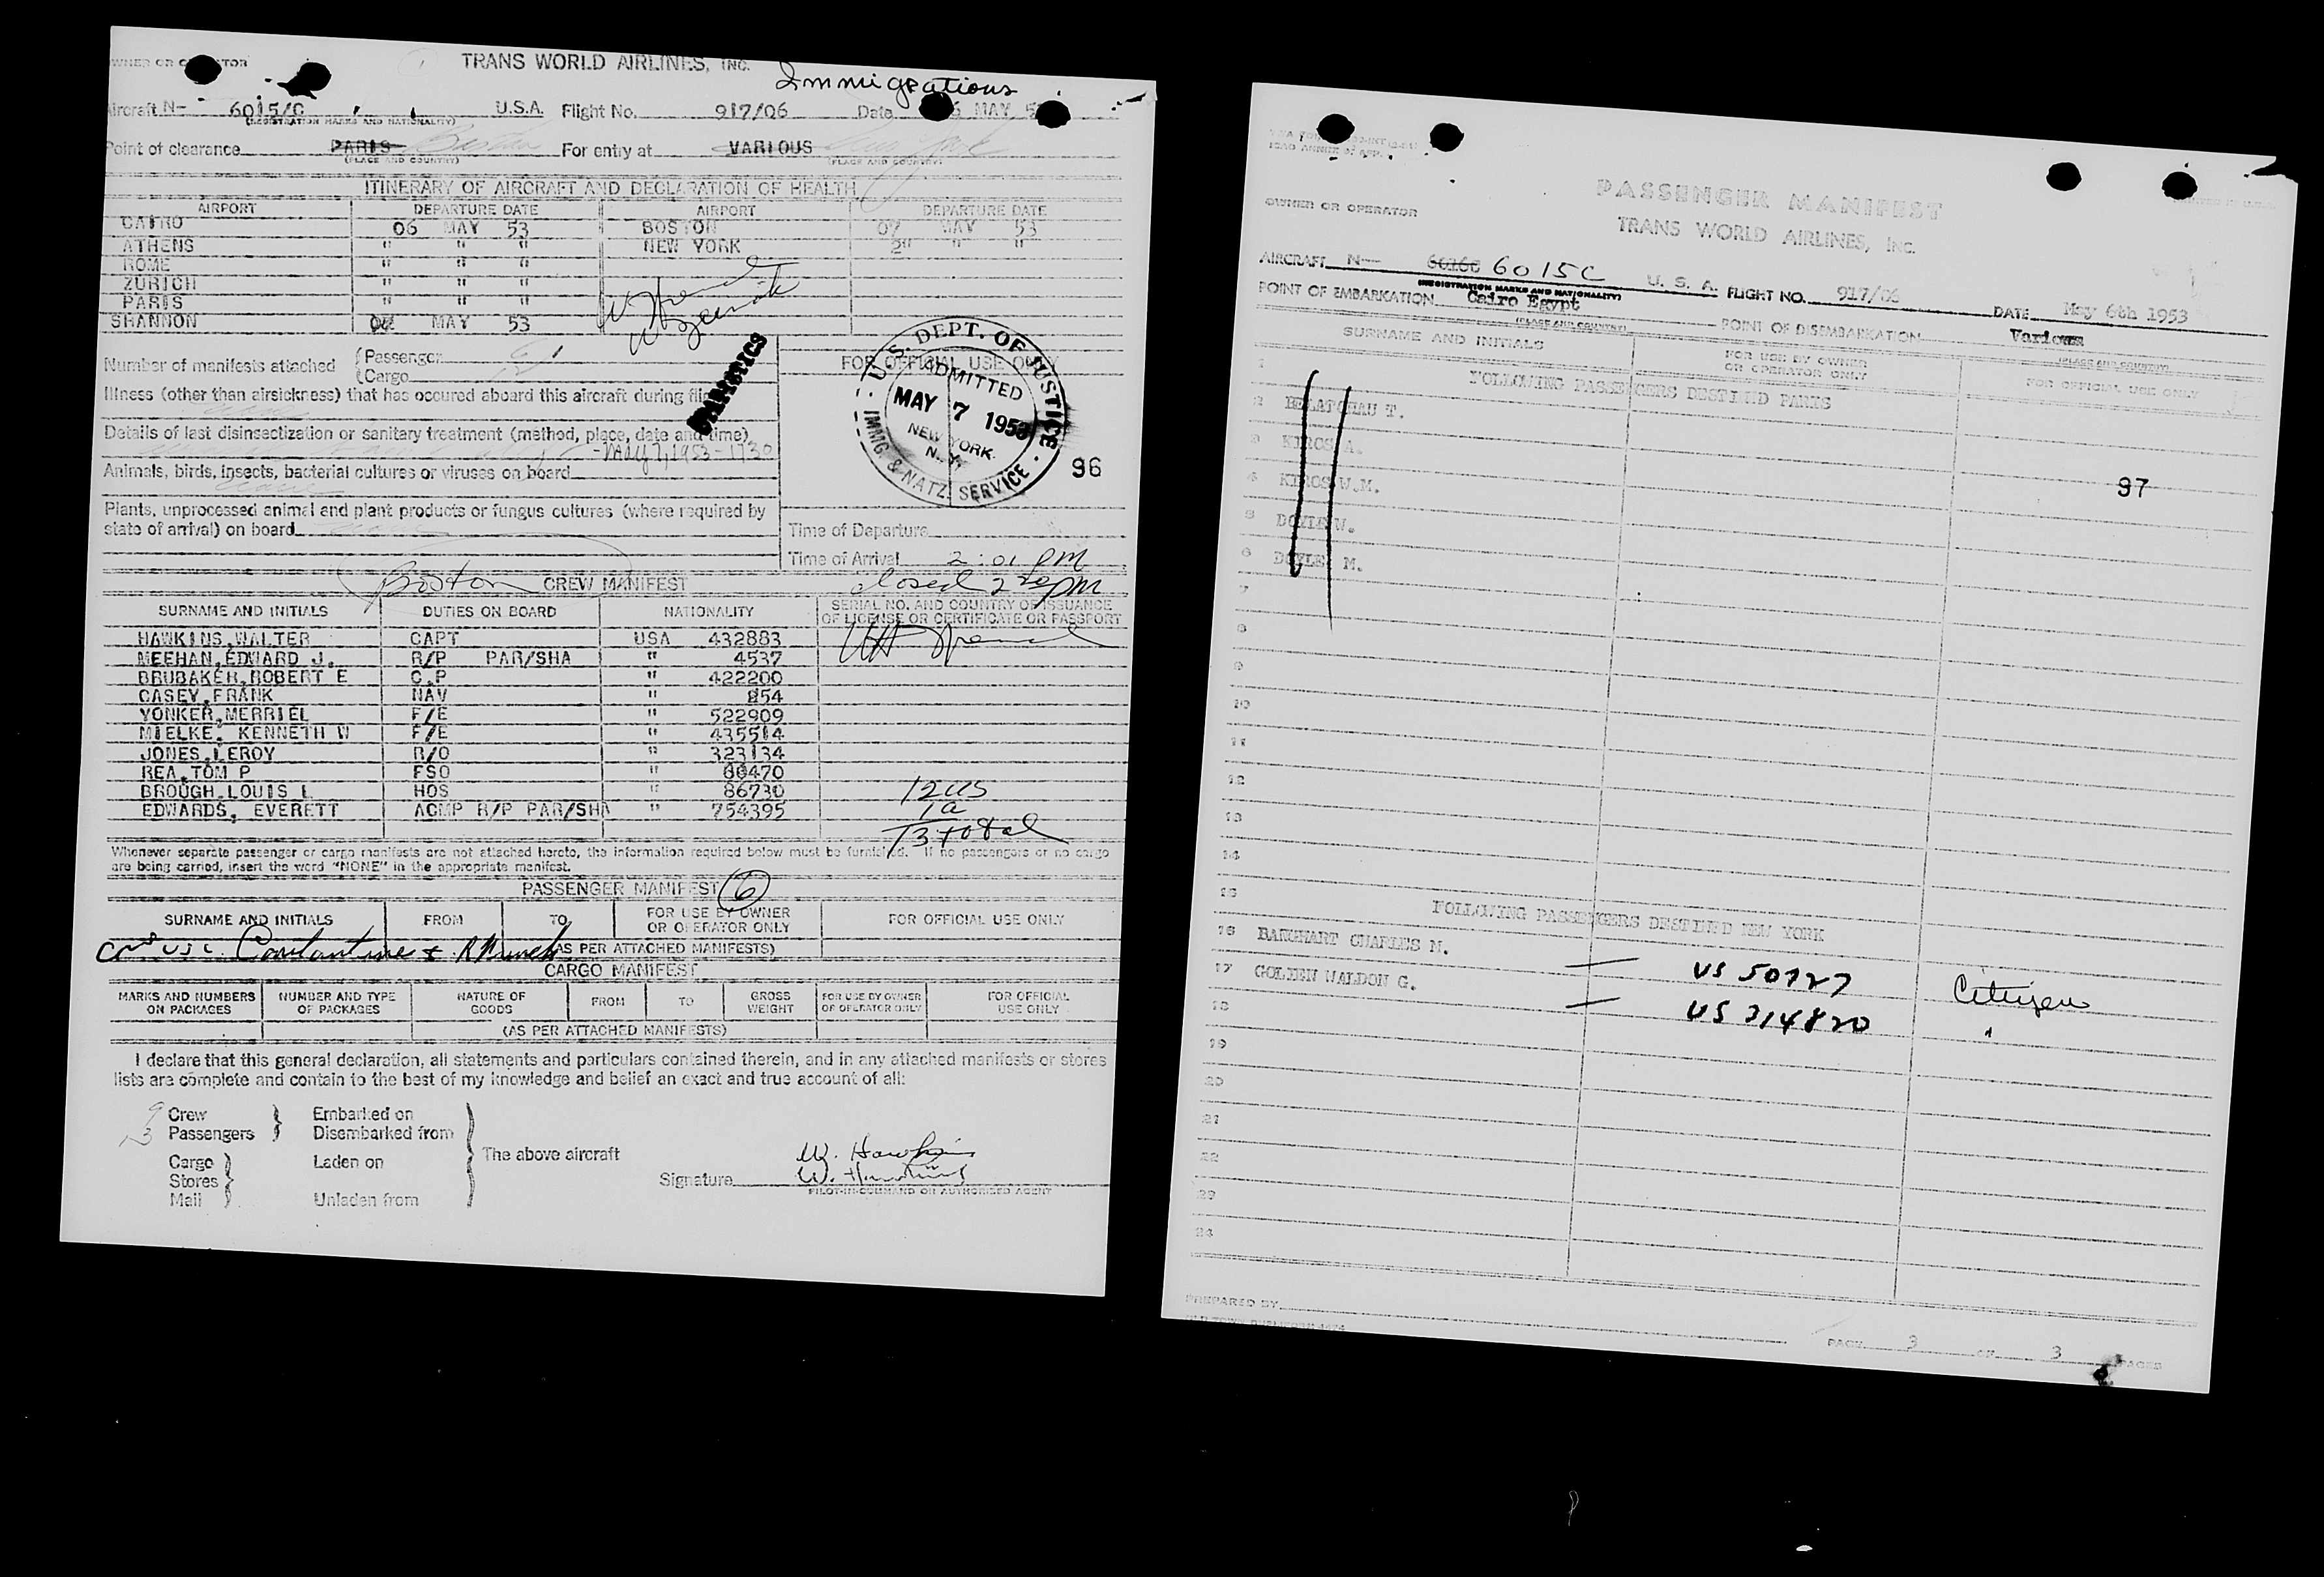 OWNER OR OPERATOR
TRANS WORLD AIRLINES, INC.
Immigrations
Aircraft N- 6015/C U.S.A. Flight No. 917/06 Date 6 MAY, 5
(REGISTRATION MARKS AND NATIONALITY)
Point of clearance PARIS Boston For entry at VARIOUS New York
(PLACE AND COUNTRY) (PLACE AND COUNTRY)
ITINERARY OF AIRCRAFT AND DECLARATION OF HEALTH
AIRPORT DEPARTURE DATE AIRPORT DEPARTURE DATE
CAIRO 06 MAY 53 BOSTON 07 MAY 53
ATHENS " " " NEW YORK " " "
ROME " " "
ZURICH " " "
PARIS " " "
SHANNON MAY 53
Number of manifests attached (Passenger
(Cargo
FOR OFFICIAL USE ONLY
U.S. DEPT. OF JUSTICE
ADMITTED
MAY 7 1953
NEW YORK
N.Y.
IMMG. & NATZ. SERVICE
96
Illness (other than airsickness) that has occured aboard this aircraft during
Details of last disinsectization or sanitary treatment (method, place, date and time)
- May 7, 1953 - 1730
Animals, birds, insects, bacterial cultures or viruses on board
Plants, unprocessed animal and plant products or fungus cultures (where required by
state of arrival) on board
Time of Departure
Time of Arrival 2:01 PM
Boston CREW MANIFEST closed 2 20 PM
SURNAME AND INITIALS DUTIES ON BOARD NATIONALITY SERIAL NO. AND COUNTRY OF ISSUANCE
OF LICENSE OR CERTIFICATE OR PASSPORT
HAWKINS,WALTER CAPT USA 432883
MEEHAN,EDWARD J. R/P PAR/SHA " 4537
BRUBAKER,ROBERT E C.P " 422200
CASEY,FRANK NAV " 854
YONKER,MERRIEL F/E " 522909
MIELKE, KENNETH W F/E " 435514
JONES,LEROY R/O " 323134
REA,TOM P FSO " 470
BROUGH,LOUIS L HOS " 86730
EDWARDS, EVERETT ACMP R/P PAR/SHA " 754395
12 US
1 a
13 total
Whenever separate passenger or cargo manifests are not attached hereto, the information required below must be furnished. If no passengers or no cargo
are being carried, insert the word "NONE" in the appropriate manifest.
PASSENGER MANIFEST 6
SURNAME AND INITIALS FROM TO FOR USE BY OWNER
OR OPERATOR ONLY FOR OFFICIAL USE ONLY
(AS PER ATTACHED MANIFESTS)
CARGO MANIFEST
MARKS AND NUMBERS
ON PACKAGES NUMBER AND TYPE
OF PACKAGES NATURE OF
GOODS FROM TO GROSS
WEIGHT FOR USE BY OWNER
OR OPERATOR ONLY FOR OFFICIAL
USE ONLY
(AS PER ATTACHED MANIFESTS)
I declare that this general declaration, all statements and particulars contained therein, and in any attached manifests or stores
lists are complete and contain to the best of my knowledge and belief an exact and true account of all:
9 Crew Embarked on
13 Passengers Disembarked from
The above aircraft
Cargo Laden on
Stores
Mail Unladen from
W. Hawkins
Signature W. Hawkins
PILOT-IN-COMMAND OR AUTHORISED AGENT
PASSENGER MANIFEST
OWNER OR OPERATOR
TRANS WORLD AIRLINES, INC.
AIRCRAFT N- 6016C 6015C U. S. A. FLIGHT NO. 917/06 DATE May 6th 1953
(REGISTRATION MARKS AND NATIONALITY)
POINT OF EMBARKATION Cairo Egypt POINT OF DISEMBARKATION Various
(PLACE AND COUNTRY) (PLACE AND COUNTRY)
SURNAME AND INITIALS FOR USE BY OWNER
OR OPERATOR ONLY FOR OFFICIAL USE ONLY
1 FOLLOWING PASSENGERS DESTINED PARIS
2 T.
3 KIROS A.
97
4 KIROS W.M.
5 DOYLE W.
6 DOYLE M.
7
8
9
10
11
12
13
14
15 FOLLOWING PASSENGERS DESTINED NEW YORK
16 BARNHART CHARLES M. — US 50727 Citizen
17 GOLDEN WALDON G. — US 314820 "
18
19
20
21
22
23
24
PREPARED BY
PAGE 3 OF 3 PAGES